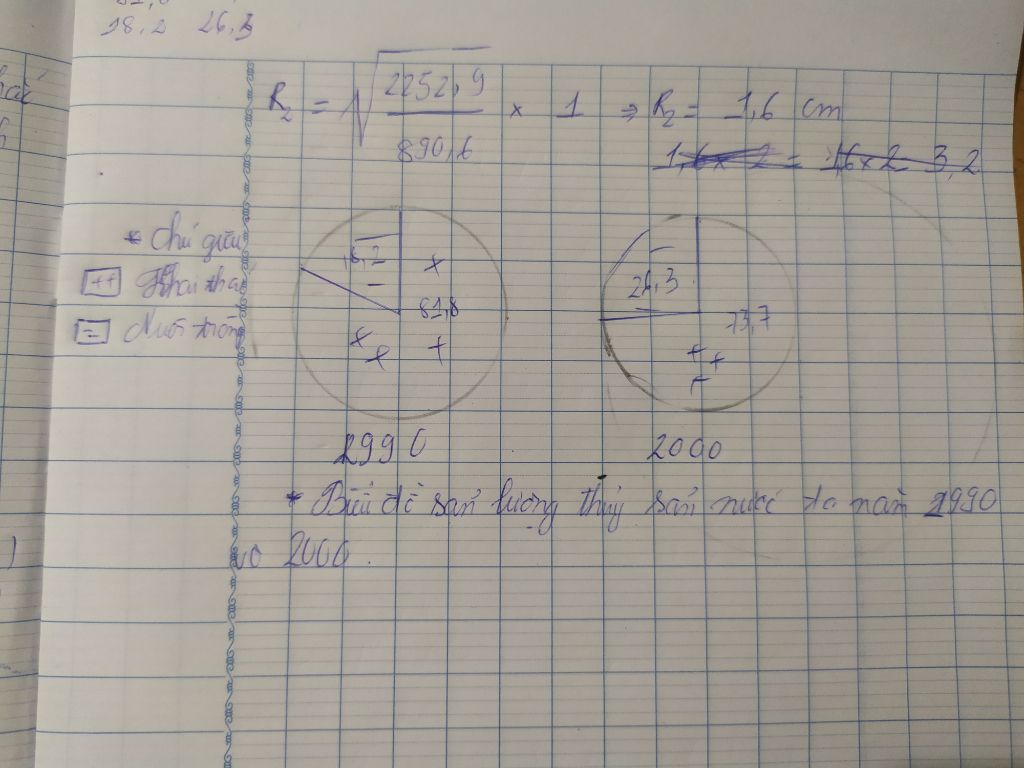 18,2 26,3
R₂ = √(2252,9 / 890,6) × 1 ⇒ R₂ = 1,6 cm
* Chú giải
++ Khai thác
= Nuôi trồng
18,2
81,8
26,3
73,7
1990
2000
* Biểu đồ sản lượng thủy sản nước ta năm 1990
và 2000.